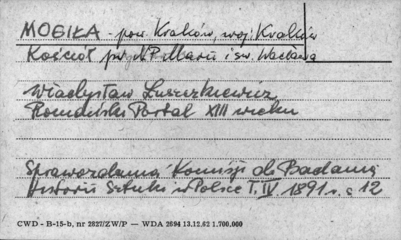 MOGIŁA - pow. Kraków, woj. Kraków
Kościół pw. NP. Marii i św. Wacława
Władysław Łuszczkiewicz
Romański Portal XIII wieku
Sprawozdania Komisji do Badania
Historii Sztuki w Polsce T. IV 1891 r. s 12
CWD - B-15-b, nr 2827/ZW/P — WDA 2694 13.12.62 1.700.000